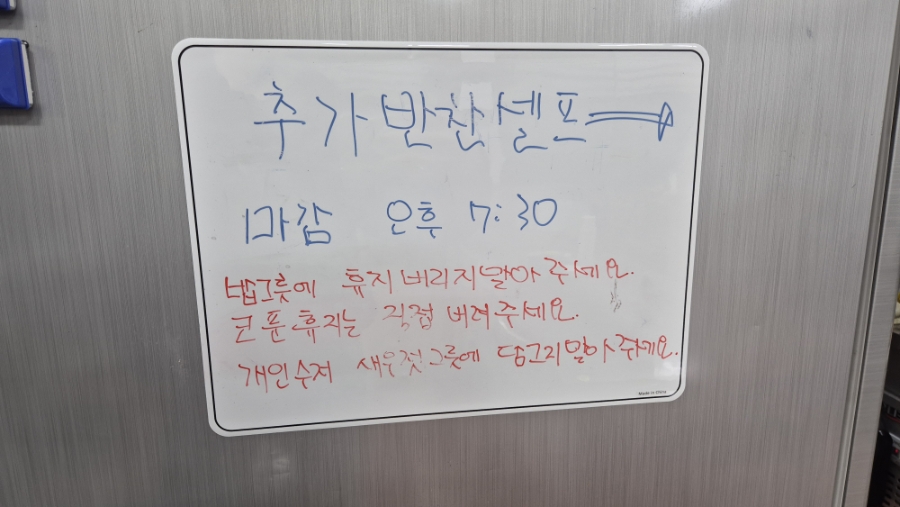 추가반찬셀프
마감 오후 7:30
밥그릇에 휴지버리지말아 주세요.
코푼휴지는 직접 버려주세요.
개인수저 새우젓그릇에 담그지말아주세요.
Made in China